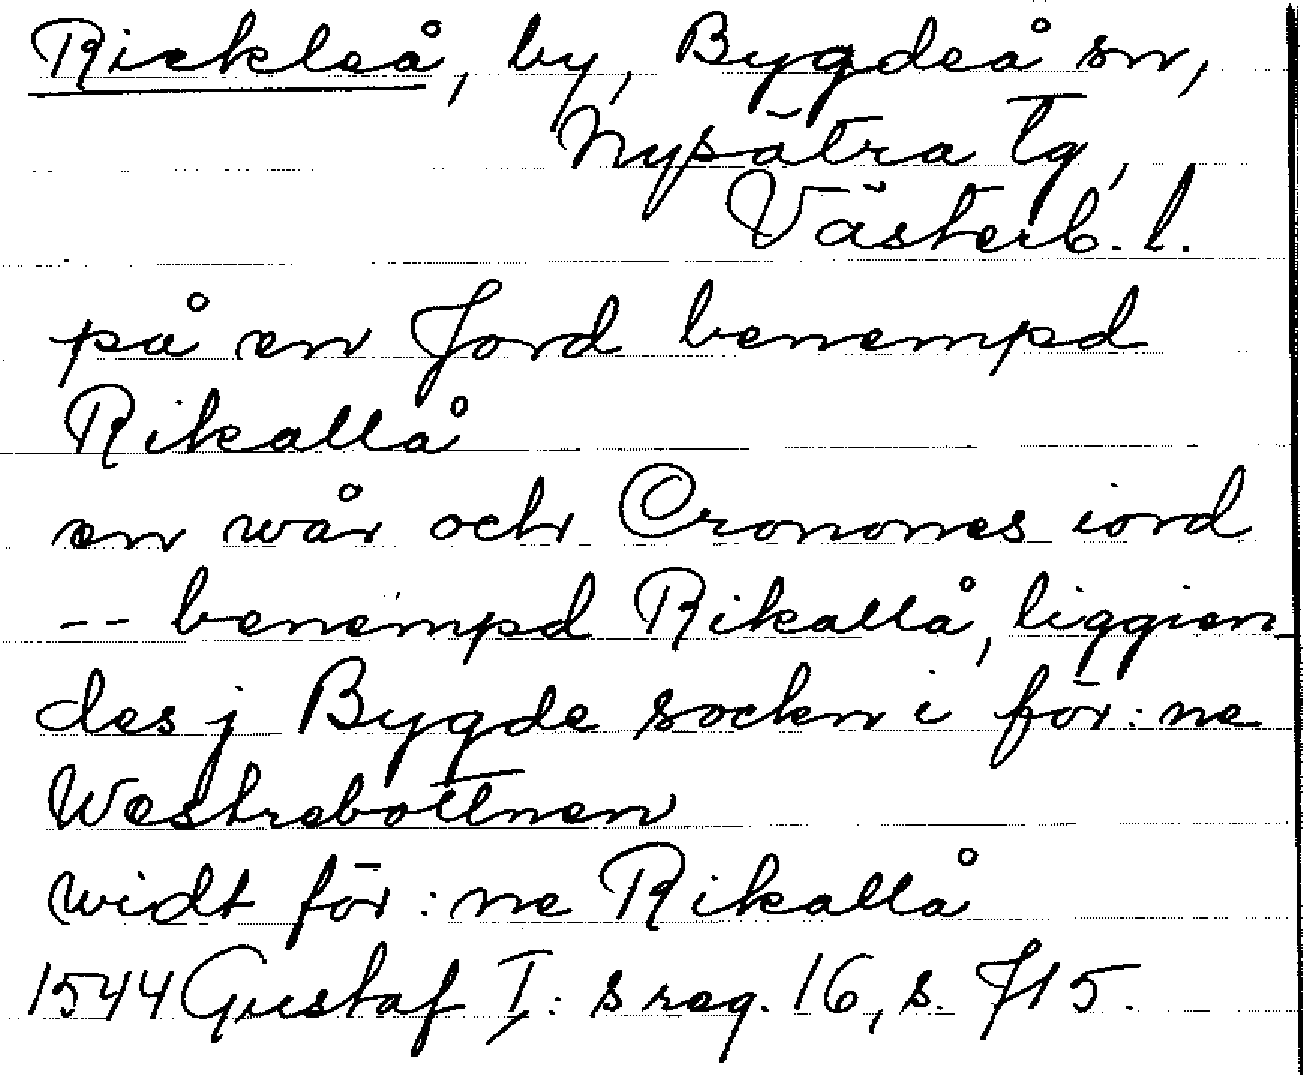 Rickleå, by, Bygdeå sn,
Nysätra tg,
Västerb. l.
på en Jord benempd
Rikallå
en wår och Cronones iord
-- benempd Rikallå, liggien
des j Bygde sockn i för:ne
Westrebottnen
widt för:ne Rikallå
1544 Gustaf I:s reg. 16, s. 715.